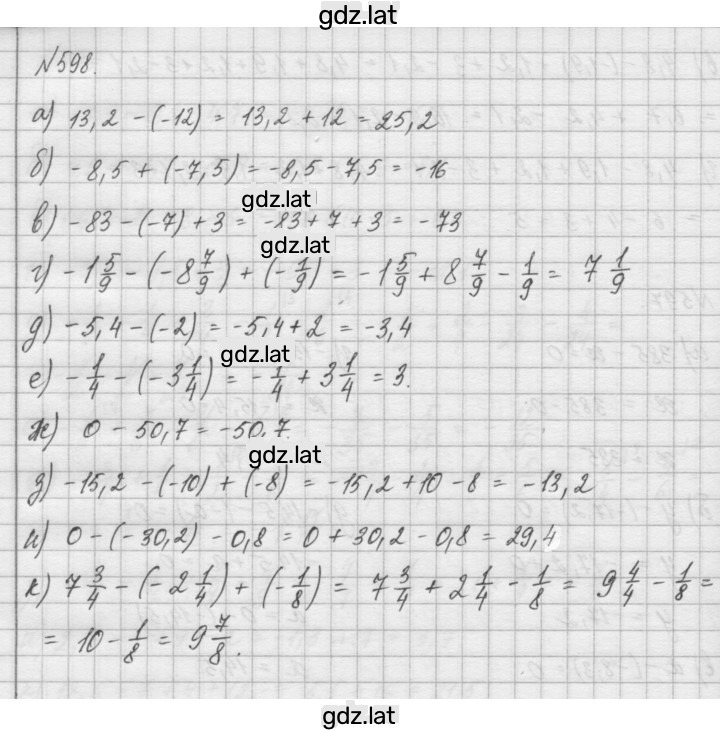 gdz.lat
№598.
а) 13,2 - (-12) = 13,2 + 12 = 25,2
б) -8,5 + (-7,5) = -8,5 - 7,5 = -16
gdz.lat
в) -83 - (-7) + 3 = -83 + 7 + 3 = -73
gdz.lat
г) -1 5/9 - (-8 7/9) + (-1/9) = -1 5/9 + 8 7/9 - 1/9 = 7 1/9
д) -5,4 - (-2) = -5,4 + 2 = -3,4
gdz.lat
е) -1/4 - (-3 1/4) = -1/4 + 3 1/4 = 3.
ж) 0 - 50,7 = -50,7.
gdz.lat
з) -15,2 - (-10) + (-8) = -15,2 + 10 - 8 = -13,2
и) 0 - (-30,2) - 0,8 = 0 + 30,2 - 0,8 = 29,4
к) 7 3/4 - (-2 1/4) + (-1/8) = 7 3/4 + 2 1/4 - 1/8 = 9 4/4 - 1/8 =
= 10 - 1/8 = 9 7/8.
gdz.lat